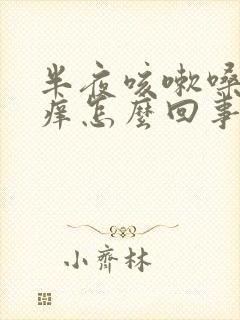 半夜咳嗽嗓
痒怎麼回事
小齊林